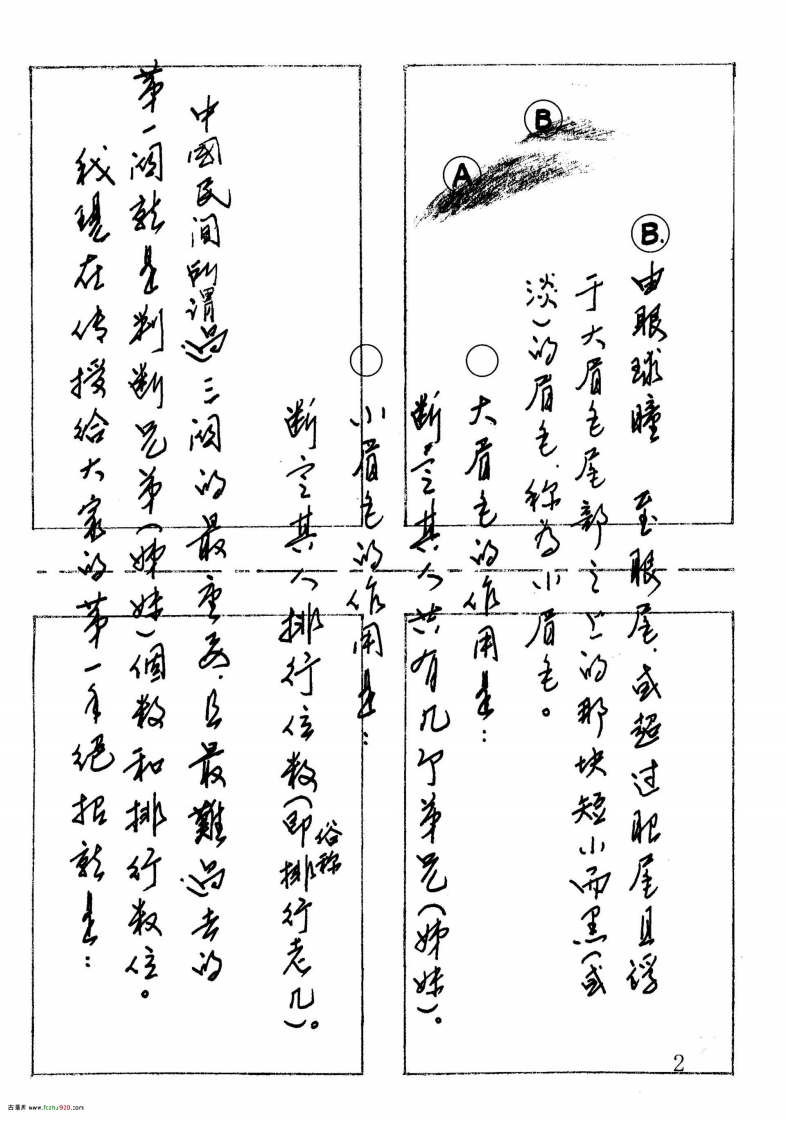 B
A
B. 由眼球瞳 至眼尾.或超过眼尾且浮
于大眉毛尾部之上的那块短小而黑(或
淡)的眉毛.称为小眉毛。
○ 大眉毛的作用是:
断定其人共有几个弟兄(姊妹)。
○ 小眉毛的作用是:
断定其人排行位数(即俗称排行老几)。
中國民间所谓过三関的最重要.且最難过去的
第一関就是判断兄弟(姊妹)個数和排行数位。
我現在传授给大家的第一手絕招就是:
2
古籍库 www.fczhu920.com